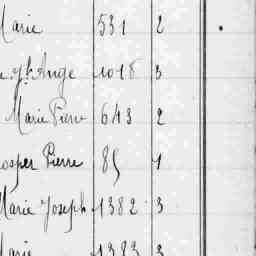 Marie 531 2
Ange 1018 3
Marie Pierre 643 2
Prosper Pierre 85 1
Marie Joseph 1382 3
Marie 1383 3